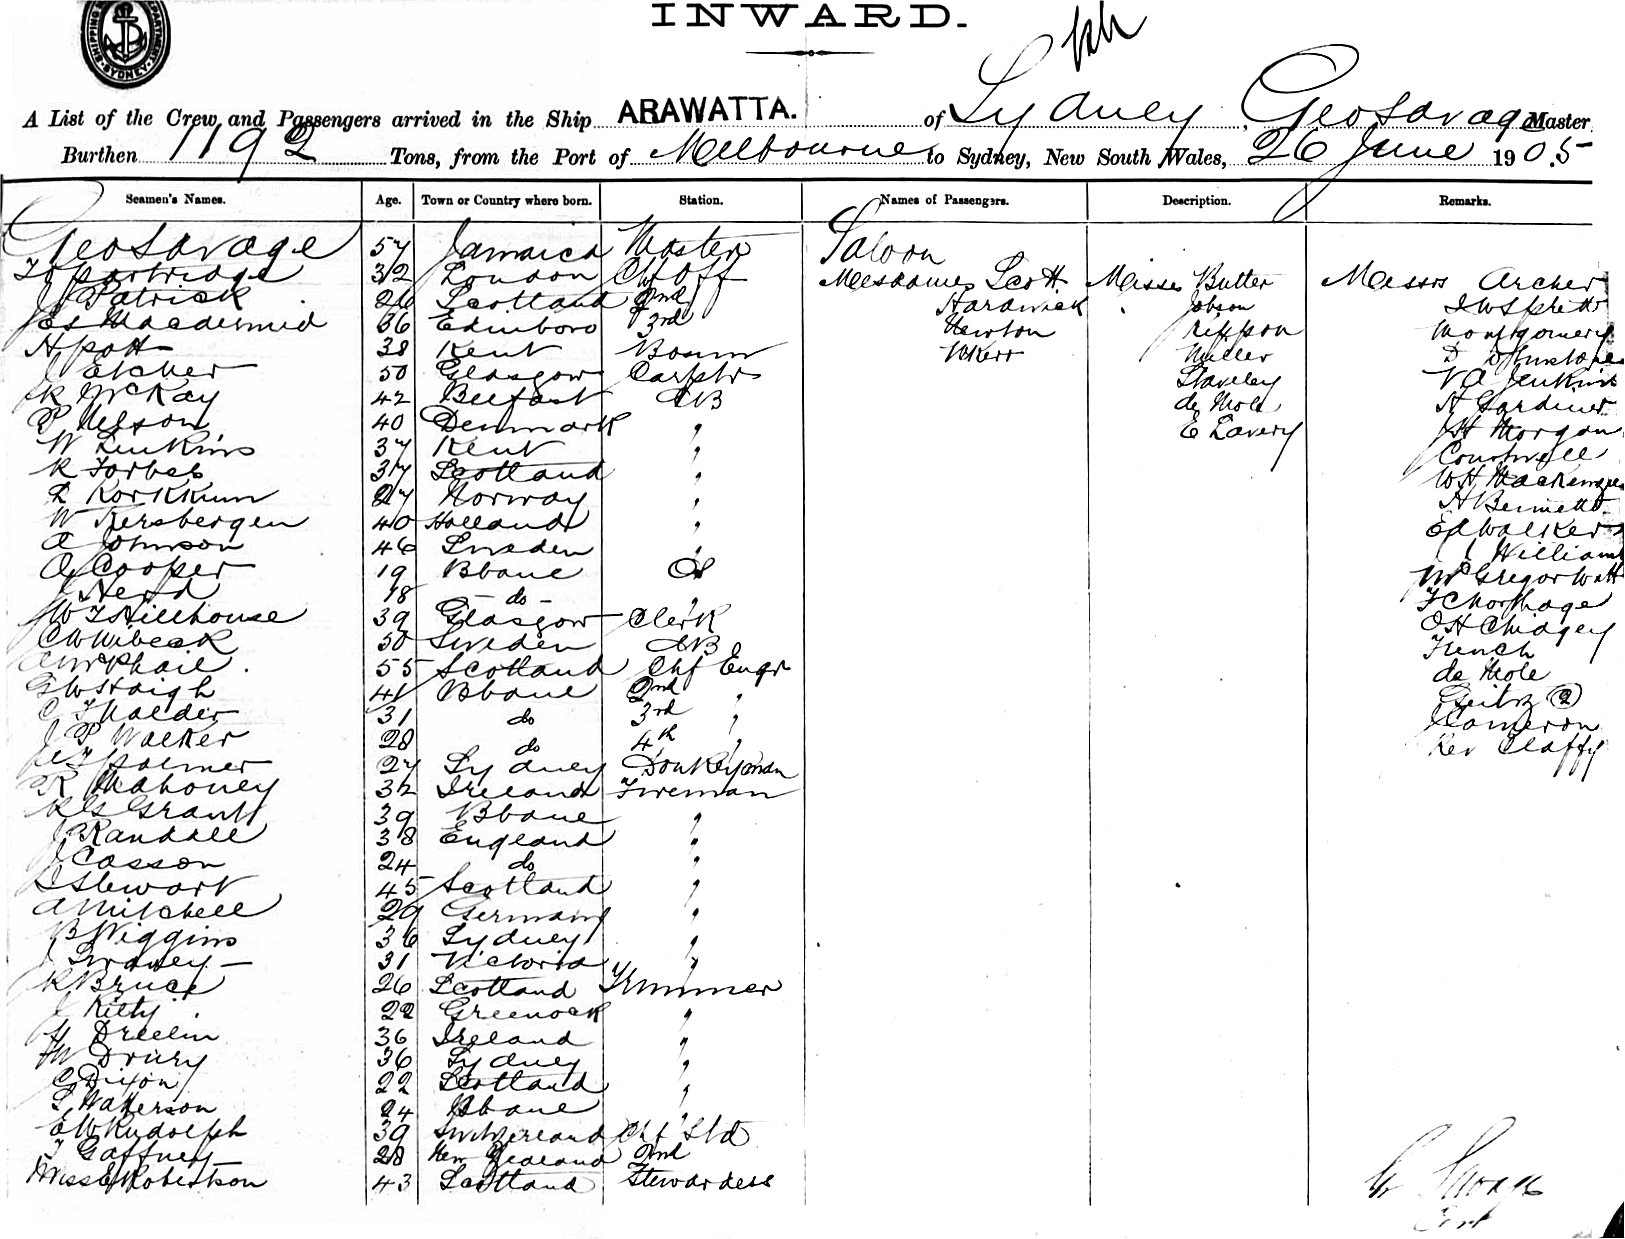 SHIPPING DEPARTMENT SYDNEY
INWARD.
A List of the Crew and Passengers arrived in the Ship ARAWATTA. of Sydney, Geo Savage Master
Burthen 1192 Tons, from the Port of Melbourne to Sydney, New South Wales, 26 June 1905
Seamen's Names. Age. Town or Country where born. Station. Names of Passengers. Description. Remarks.
Geo Savage 57 Jamaica Master Saloon
Partridge 32 London Chf Off Mesdames Scott Misses Butler Messrs Archer
J Patrick 26 Scotland 2nd Hardwick Jobson
Jas Macdermid 36 Edinboro 3rd Newton Rippon Montgomery
H Pott 38 Kent Bosun W Kerr Miller D Johnstone
J Elcher 50 Glasgow Carptr Staveley V A Jenkins
R McKay 42 Belfast AB de Mole H Gardiner
P Nelson 40 Denmark " E Lavery J H Morgan
W Jenkins 37 Kent "
R Forbes 37 Scotland " W H Mackenzie
27 Norway " H Bennett
W Kersbergen 40 Holland " E A Walker
A Johnson 46 Sweden " Williams
A Cooper 19 Bbane OS McGregor Watt
J Herd 18 - do - "
W J Hillhouse 39 Glasgow Clerk O H Chidgey
C W Wibeck 50 Sweden AB French
A McPhail 55 Scotland Chf Engr de Mole
G W Haigh 41 Bbane 2nd " Seitz (2)
C F Maeder 31 do 3rd " J Cameron
J P Walker 28 do 4th " Rev Claffy
Palmer 27 Sydney Donkeyman
R Mahoney 32 Ireland Fireman
R G Grant 39 Bbane "
J Randall 38 England "
J Casson 24 do "
D Stewart 45 Scotland "
A Mitchell 29 Germany "
B Wiggins 36 Sydney "
J Swaney 31 Victoria "
R Bruce 26 Scotland Trimmer
J Kelly 22 Greenock "
36 Ireland "
H W Drury 36 Sydney "
C Dixon 22 Scotland "
S Watterson 24 Bbane "
E W Rudolph 39 Switzerland Chf Std
T Gaffney 28 New Zealand 2nd
Miss Robertson 43 Scotland Stewardess
G Savage